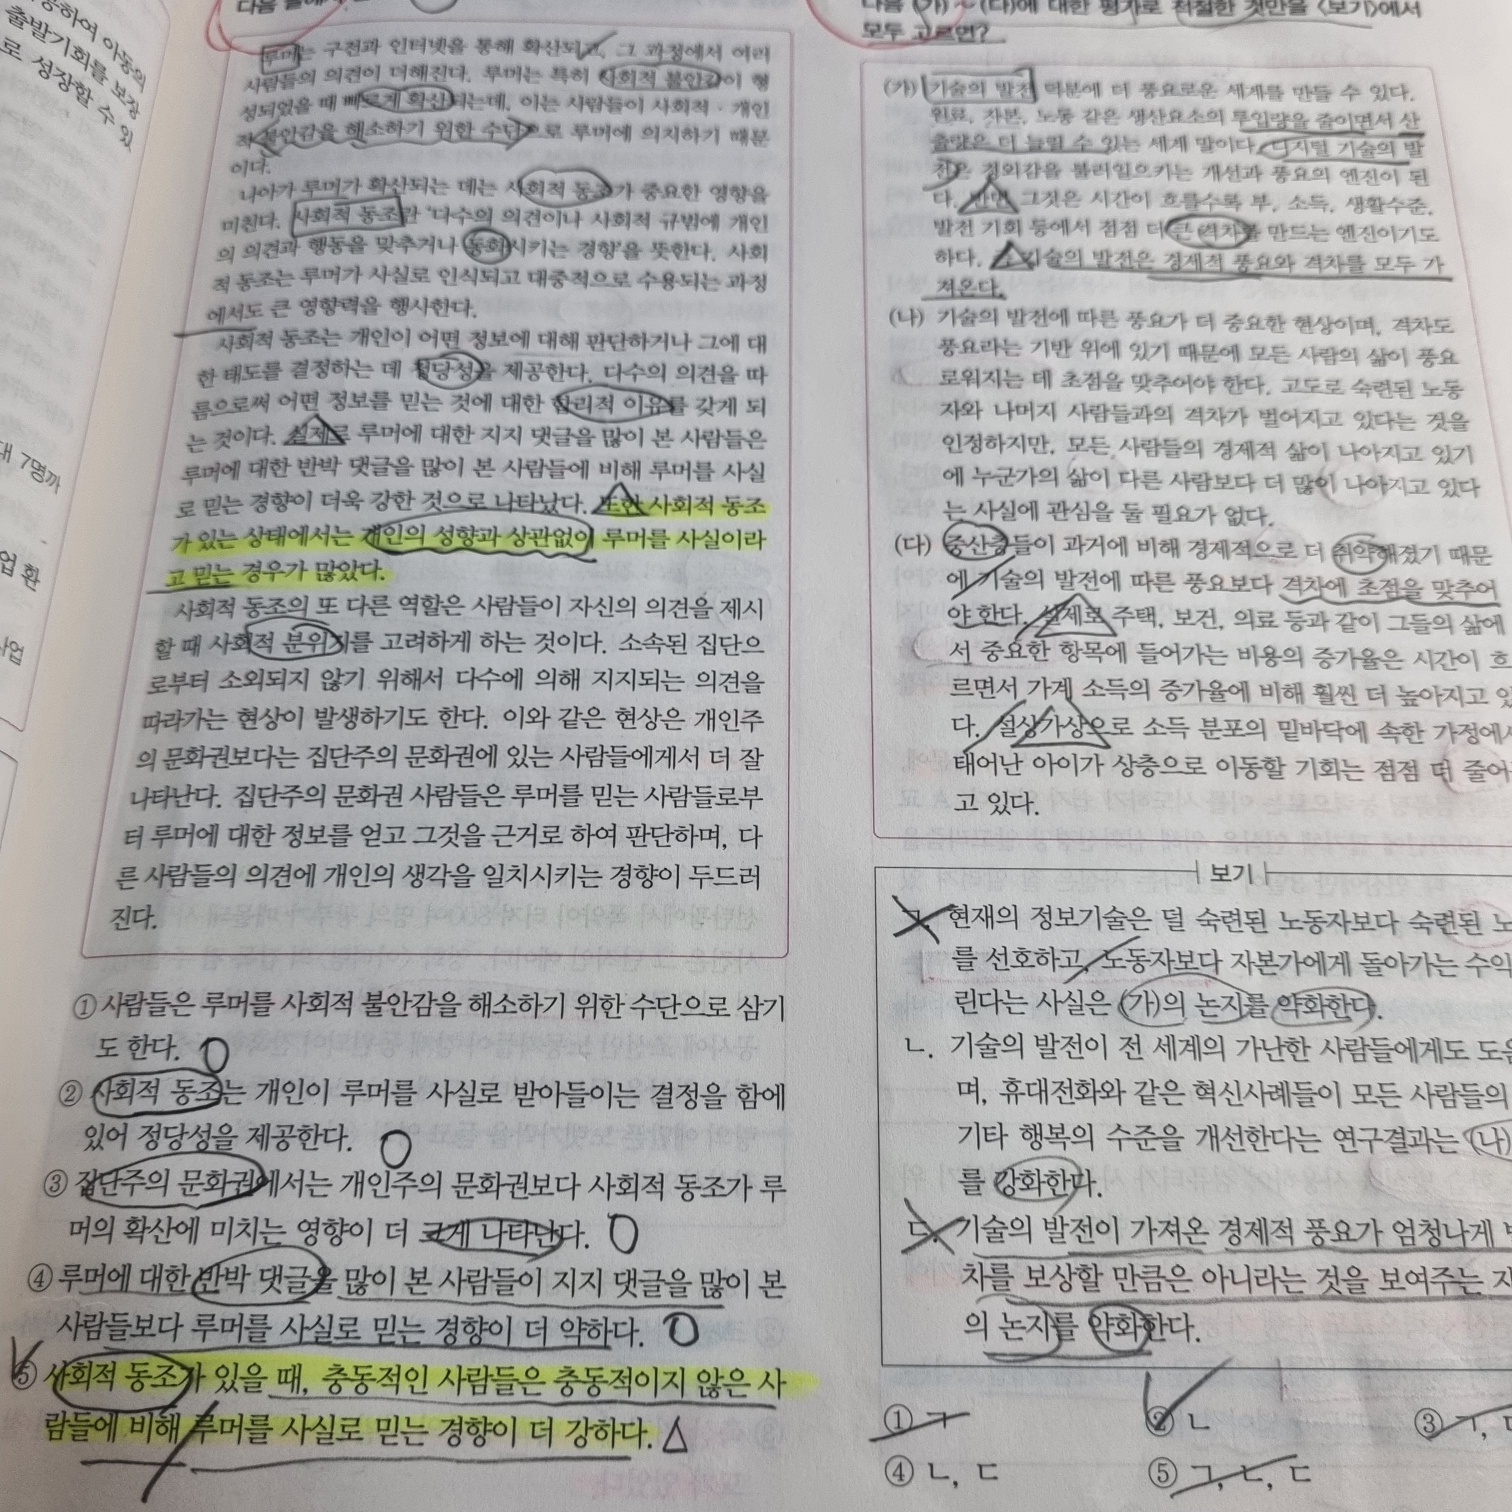 공하여 아동의
출발기회를 보장
로 성장할 수 있
대 7명까
업 환
사업
루머는 구전과 인터넷을 통해 확산되고, 그 과정에서 여러
사람들의 의견이 더해진다. 루머는 특히 사회적 불안감이 형
성되었을 때 빠르게 확산되는데, 이는 사람들이 사회적 · 개인
적 불안감을 해소하기 위한 수단으로 루머에 의지하기 때문
이다.
나아가 루머가 확산되는 데는 사회적 동조가 중요한 영향을
미친다. 사회적 동조란 '다수의 의견이나 사회적 규범에 개인
의 의견과 행동을 맞추거나 동화시키는 경향'을 뜻한다. 사회
적 동조는 루머가 사실로 인식되고 대중적으로 수용되는 과정
에서도 큰 영향력을 행사한다.
사회적 동조는 개인이 어떤 정보에 대해 판단하거나 그에 대
한 태도를 결정하는 데 정당성을 제공한다. 다수의 의견을 따
름으로써 어떤 정보를 믿는 것에 대한 합리적 이유를 갖게 되
는 것이다. 실제로 루머에 대한 지지 댓글을 많이 본 사람들은
루머에 대한 반박 댓글을 많이 본 사람들에 비해 루머를 사실
로 믿는 경향이 더욱 강한 것으로 나타났다. 또한 사회적 동조
가 있는 상태에서는 개인의 성향과 상관없이 루머를 사실이라
고 믿는 경우가 많았다.
사회적 동조의 또 다른 역할은 사람들이 자신의 의견을 제시
할 때 사회적 분위기를 고려하게 하는 것이다. 소속된 집단으
로부터 소외되지 않기 위해서 다수에 의해 지지되는 의견을
따라가는 현상이 발생하기도 한다. 이와 같은 현상은 개인주
의 문화권보다는 집단주의 문화권에 있는 사람들에게서 더 잘
나타난다. 집단주의 문화권 사람들은 루머를 믿는 사람들로부
터 루머에 대한 정보를 얻고 그것을 근거로 하여 판단하며, 다
른 사람들의 의견에 개인의 생각을 일치시키는 경향이 두드러
진다.
① 사람들은 루머를 사회적 불안감을 해소하기 위한 수단으로 삼기
도 한다.
② 사회적 동조는 개인이 루머를 사실로 받아들이는 결정을 함에
있어 정당성을 제공한다.
③ 집단주의 문화권에서는 개인주의 문화권보다 사회적 동조가 루
머의 확산에 미치는 영향이 더 크게 나타난다.
④ 루머에 대한 반박 댓글을 많이 본 사람들이 지지 댓글을 많이 본
사람들보다 루머를 사실로 믿는 경향이 더 약하다.
⑤ 사회적 동조가 있을 때, 충동적인 사람들은 충동적이지 않은 사
람들에 비해 루머를 사실로 믿는 경향이 더 강하다.
다음 (가)~(다)에 대한 평가로 적절한 것만을 〈보기〉에서
모두 고르면?
(가) 기술의 발전 덕분에 더 풍요로운 세계를 만들 수 있다.
원료, 자본, 노동 같은 생산요소의 투입량을 줄이면서 산
출량은 더 늘릴 수 있는 세계 말이다. 디지털 기술의 발
전은 경외감을 불러일으키는 개선과 풍요의 엔진이 된
다. 반면 그것은 시간이 흐를수록 부, 소득, 생활수준,
발전 기회 등에서 점점 더 큰 격차를 만드는 엔진이기도
하다. 즉 기술의 발전은 경제적 풍요와 격차를 모두 가
져온다.
(나) 기술의 발전에 따른 풍요가 더 중요한 현상이며, 격차도
풍요라는 기반 위에 있기 때문에 모든 사람의 삶이 풍요
로워지는 데 초점을 맞추어야 한다. 고도로 숙련된 노동
자와 나머지 사람들과의 격차가 벌어지고 있다는 것을
인정하지만, 모든 사람들의 경제적 삶이 나아지고 있기
에 누군가의 삶이 다른 사람보다 더 많이 나아지고 있다
는 사실에 관심을 둘 필요가 없다.
(다) 중산층들이 과거에 비해 경제적으로 더 취약해졌기 때문
에 기술의 발전에 따른 풍요보다 격차에 초점을 맞추어
야 한다. 실제로 주택, 보건, 의료 등과 같이 그들의 삶에
서 중요한 항목에 들어가는 비용의 증가율은 시간이 흐
르면서 가계 소득의 증가율에 비해 훨씬 더 높아지고 있
다. 설상가상으로 소득 분포의 밑바닥에 속한 가정에서
태어난 아이가 상층으로 이동할 기회는 점점 더 줄어
고 있다.
보기
ㄱ. 현재의 정보기술은 덜 숙련된 노동자보다 숙련된 노
를 선호하고, 노동자보다 자본가에게 돌아가는 수익
린다는 사실은 (가)의 논지를 약화한다.
ㄴ. 기술의 발전이 전 세계의 가난한 사람들에게도 도움
며, 휴대전화와 같은 혁신사례들이 모든 사람들의
기타 행복의 수준을 개선한다는 연구결과는 (나)
를 강화한다.
ㄷ. 기술의 발전이 가져온 경제적 풍요가 엄청나게 벌
차를 보상할 만큼은 아니라는 것을 보여주는 자
의 논지를 약화한다.
① ㄱ
② ㄴ
③ ㄱ, ㄷ
④ ㄴ, ㄷ
⑤ ㄱ, ㄴ, ㄷ